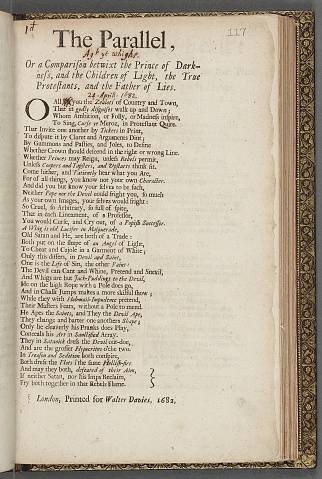 1d
117
The Parallel,
Agt ye whigs.
Or a Comparison betwixt the Prince of Dark-
ness, and the Children of Light, the True
Protestants, and the Father of Lies.
24 April. 1682.
O All you the Zealots of Country and Town,
That in godly disguises walk up and Down;
Whom Ambition, or Folly, or Madness inspire,
To Sing, Curse ye Meroz, in Protestant Quire.
That Invite one another by Tickets in Print,
To dispute it by Claret and Arguments Dint;
By Gammons and Pasties, and Joles, to Define
Whether Crown should descend in the right or wrong Line.
Whether Princes may Reign, unless Rebels permit,
Unless Coopers and Taylers, and Upstarts think fit.
Come hither, and Patiently hear what you Are,
For of all things, you know not your own Character.
And did you but know your selves to be such,
Neither Pope nor the Devil could fright you, so much
As your own Images, your selves would fright:
So Cruel, so Arbitrary, so full of spite,
That in each Lineament, of a Professor,
You would Curse, and Cry out, of a Popish Successor.
A Whig is old Lucifer in Masquerade,
Old Satan and He, are both of a Trade:
Both put on the shape of an Angel of Light,
To Cheat and Cajole in a Garment of White;
Only this differs, in Devil and Saint,
One is the Lyfe of Sin, the other Paint:
The Devil can Cant and Whine, Pretend and Snivil,
And Whigs are but Jack-Puddings to the Devil,
He on the high Rope with a Pole does go,
And in Chalk Pumps makes a more skilful show;
While they with Hobnail-Impudence pretend,
Their Masters Feats, without a Pole to mend.
He Apes the Saints, and They the Devil Ape,
They change and barter one anothers Shape;
Only he cleaverly his Pranks does Play,
Conceals his Art in Sanctified Array.
They in Satanick dress the Devil out-doe,
And are the grosser Hypocrites o'the two.
In Treason and Sedition both conspire,
Both dress the Plots i'the same Hellish-fire.
And may they both, defeated of their Aim,
If neither Satan, nor his Imps Reclaim,
Fry both together in that Rebels Flame.
London, Printed for Walter Davies, 1682.